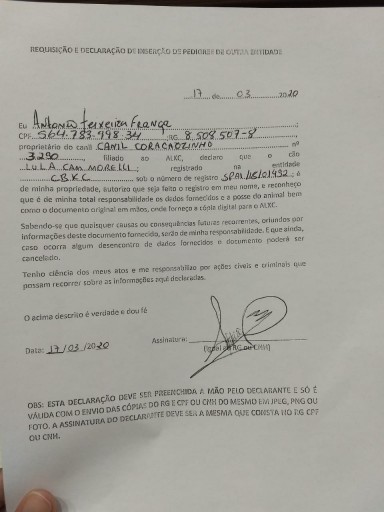 REQUISIÇÃO E DECLARAÇÃO DE INSERÇÃO DE PEDIGREE DE OUTRA ENTIDADE
17 de 03 2020
Eu Antonio Ferreira França
CPF 564.783.998.34 RG 8.508.507-8
proprietário do canil CANIL CORAÇAOZINHO nº
3.290 filiado ao ALKC, declaro que o cão
LULA CAM MORELLI registrado na entidade
CBKC sob o número de registro é
de minha propriedade, autorizo que seja feito o registro em meu nome, e reconheço
que é de minha total responsabilidade os dados fornecidos e a posse do animal bem
como o documento original em mãos, onde forneço a cópia digital para o ALKC.
Sabendo-se que quaisquer causas ou consequências futuras recorrentes, oriundas por
informações deste documento fornecido, serão de minha responsabilidade. E que ainda,
caso ocorra algum desencontro de dados fornecidos o documento poderá ser
cancelado.
Tenho ciência dos meus atos e me responsabilizo por ações cíveis e criminais que
possam recorrer sobre as informações aqui declaradas.
O acima descrito é verdade e dou fé
Assinatura:
(Igual ao RG ou CNH)
Data: 17/03/2020
OBS: ESTA DECLARAÇÃO DEVE SER PREENCHIDA A MÃO PELO DECLARANTE E SÓ É
VÁLIDA COM O ENVIO DAS CÓPIAS DO RG E CPF OU CNH DO MESMO EM JPEG, PNG OU
FOTO. A ASSINATURA DO DECLARANTE DEVE SER A MESMA QUE CONSTA NO RG CPF
OU CNH.